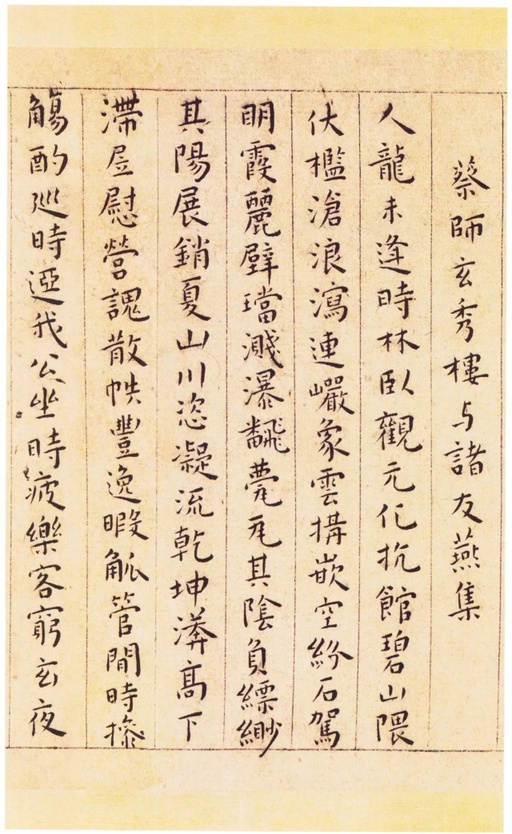 蔡師玄秀樓与諸友燕集
人龍未逢時林臥觀元化抗館碧山隈
伏檻滄浪瀉連巖象雲搆嵌空紛石駕
明霞麗壁璫濺瀑飜甍瓦其陰負縹緲
其陽展銷夏山川恣凝流乾坤漭高下
滯屋慰營謉散帙豐逸暇觚管間時摻
觴酌巡時迓我公坐時疲樂客窮玄夜